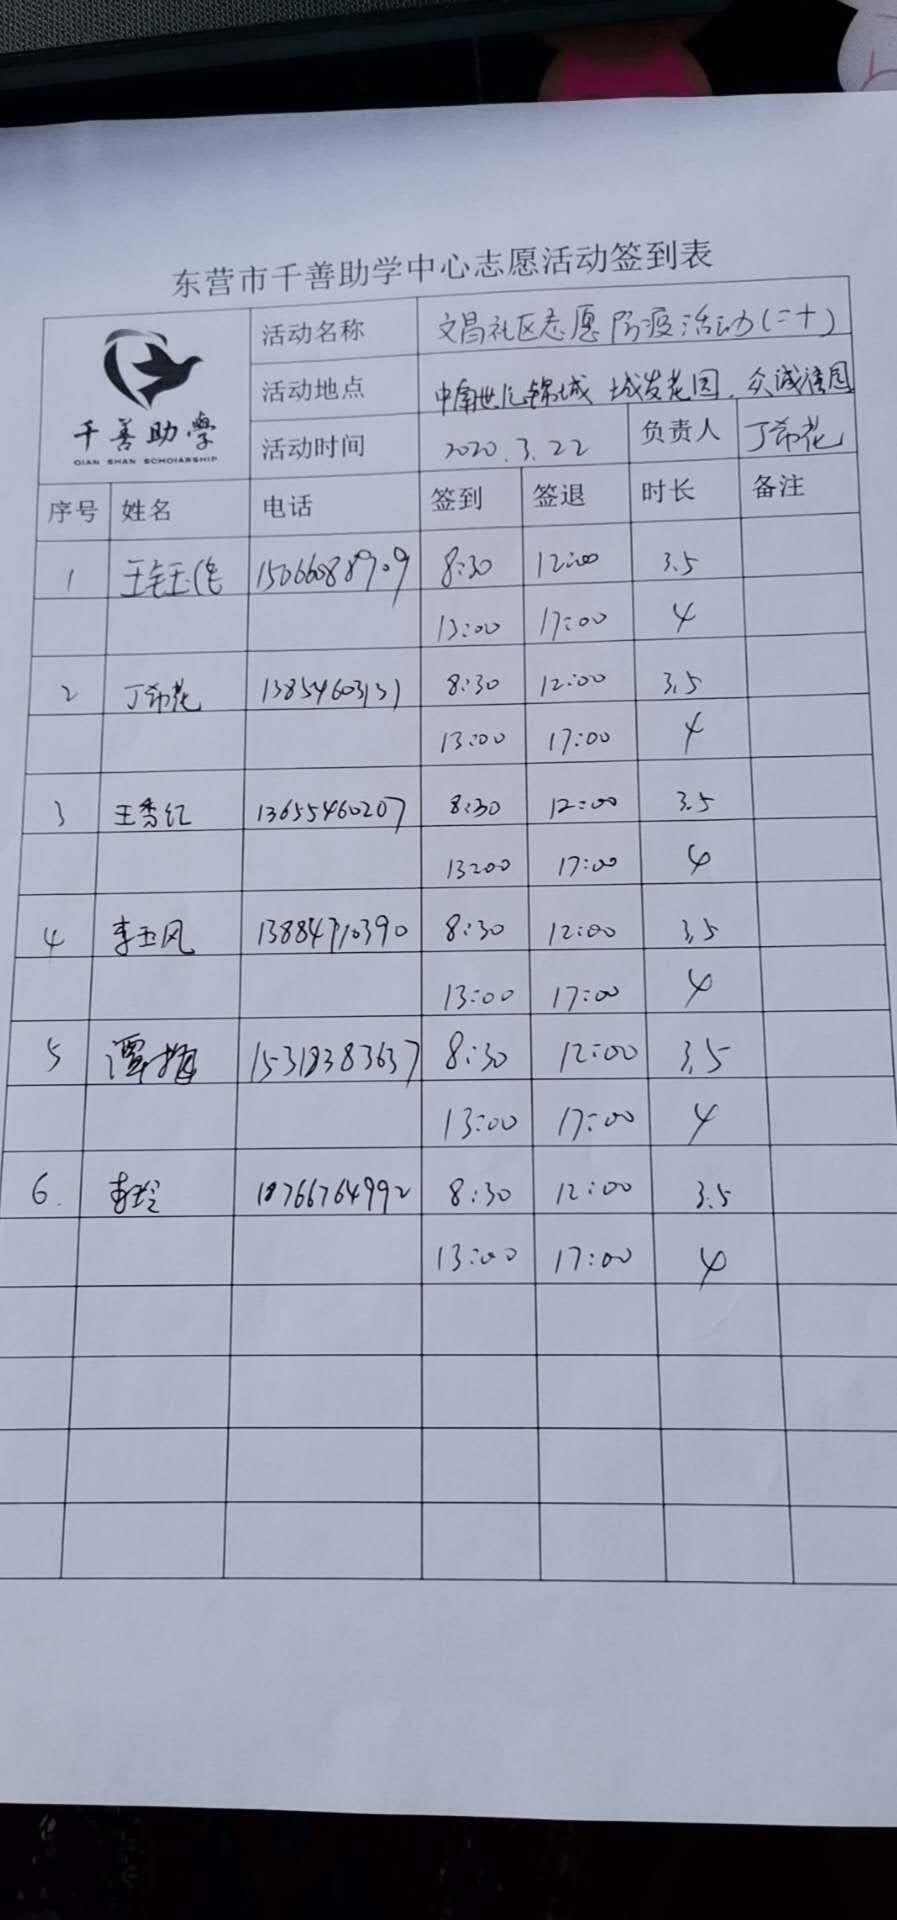 东营市千善助学中心志愿活动签到表
千善助学
QIAN SHAN SCHOLARSHIP
活动名称 文昌社区志愿防疫活动(二十)
活动地点 中南世纪锦城 城发花园. 众诚清园
活动时间 2020.3.22 负责人 丁希花
序号 姓名 电话 签到 签退 时长 备注
1 15066088909 8:30 12:00 3.5
13:00 17:00 4
2 丁希花 13854603131 8:30 12:00 3.5
13:00 17:00 4
3 王秀红 13655460207 8:30 12:00 3.5
13:00 17:00 4
4 李玉风 13884710390 8:30 12:00 3.5
13:00 17:00 4
5 谭梅 15318383637 8:30 12:00 3.5
13:00 17:00 4
6. 李玲 18766764992 8:30 12:00 3.5
13:00 17:00 4